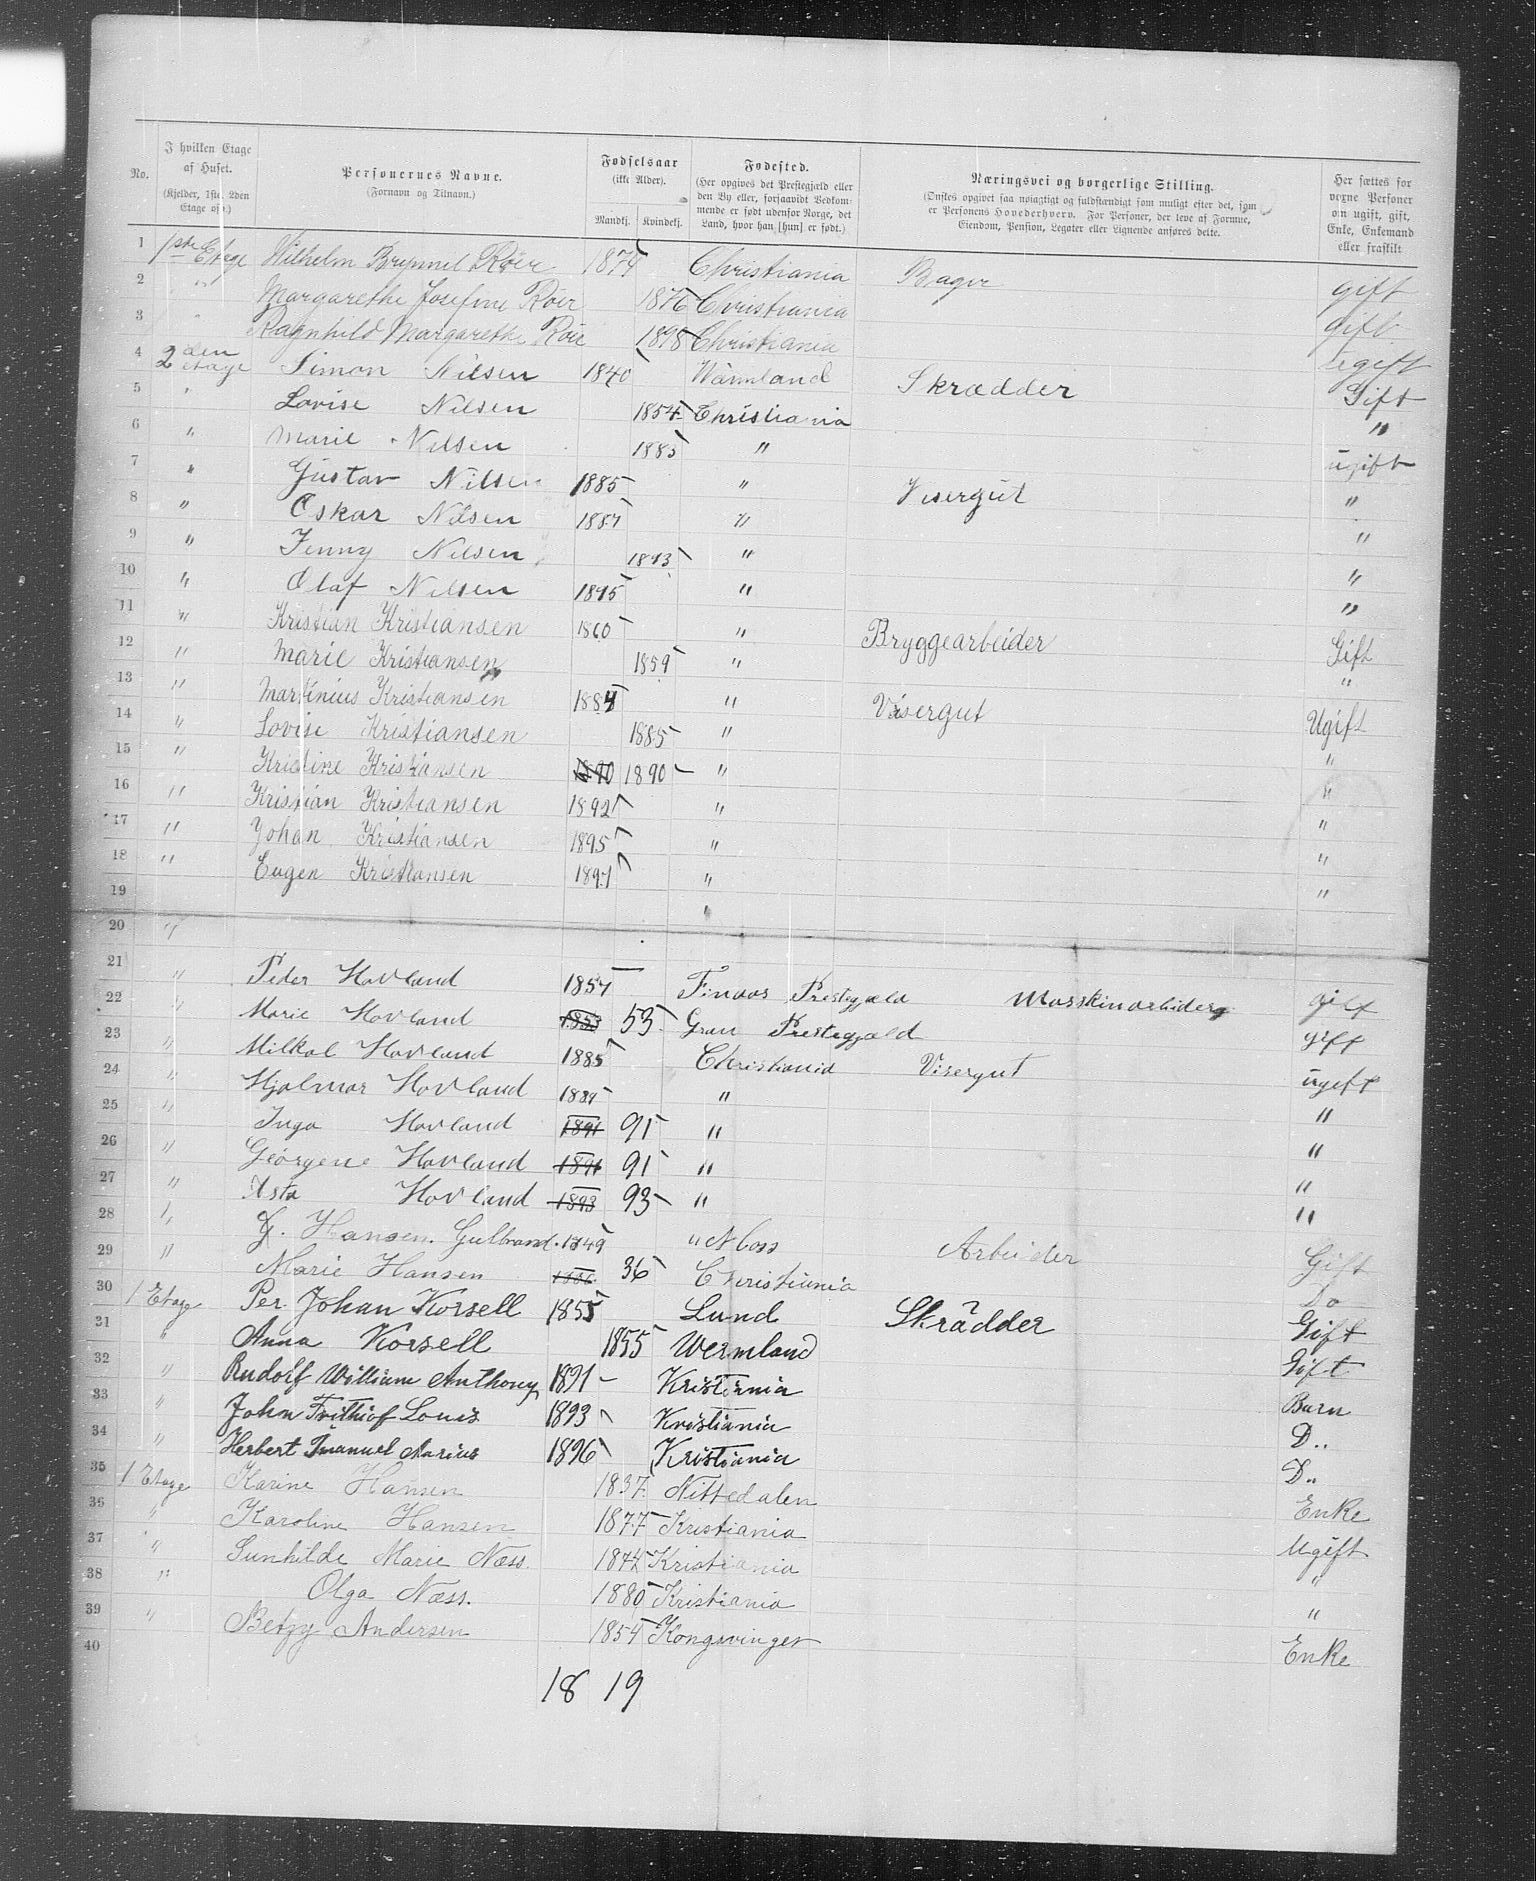 No. | I hvilken Etage af Huset. (Kjelder, 1ste, 2den Etage osv.) | Personernes Navne. (Fornavn og Tilnavn.) | Fødselsaar (ikke Alder). Mandkj. Kvindekj. | Fødested. (Her opgives det Prestegjæld eller den By eller, forsaavidt Vedkommende er født udenfor Norge, det Land, hvor han [hun] er født.) | Næringsvei og borgerlige Stilling. (Ønskes opgivet saa nøiagtigt og fuldstændigt som muligt efter det, som er Personens Hovederhverv. For Personer, der leve af Formue, Eiendom, Pension, Legater eller Lignende anføres dette. | Her sættes for voxne Personer om ugift, gift, Enke, Enkemand eller fraskilt
1 1ste Etage Wilhelm Røer 1874 Christiania Bager gift
2 " Margarethe Josefine Røer 1876 Christiania gift
3 " Ragnhild Margarethe Røer 1898 Christiania ugift
4 2den etage Simon Nilsen 1840 Wärmland Skrædder Gift
5 " Lovise Nilsen 1854 Christiania "
6 " Marie Nilsen 1883 " ugift
7 " Gustav Nilsen 1885 " Visergut "
8 " Oskar Nilsen 1887 " "
9 " Jenny Nilsen 1893 " "
10 " Olaf Nilsen 1895 " "
11 " Kristian Kristiansen 1860 " Bryggearbeider Gift
12 " Marie Kristiansen 1859 " "
13 " Martinius Kristiansen 1884 " Visergut Ugift
14 " Lovise Kristiansen 1885 " "
15 " Kristine Kristiansen 1890 1890 " "
16 " Kristian Kristiansen 1892 " "
17 " Johan Kristiansen 1895 " "
18 " Eugen Kristiansen 1897 " "
19 "
20 "
21 " Peder Hovland 1857 Finaas Prestegjæld Masskinarbider gift
22 " Marie Hovland 1853 53 Gran Prestegjæld gift
23 " Milkal Hovland 1885 Christiania Visergut ugift
24 " Hjalmar Hovland 1889 " "
25 " Inga Hovland 1891 91 " "
26 " Georgene Hovland 1891 91 " "
27 " Asta Hovland 1893 93 " "
28 " G. Hansen. Gulbrand. 1849 " Moss Arbeider Gift
29 " Marie Hansen 1836 36 Christiania Do
30 1 Etage Per. Johan Korsell 1855 Lund Skrädder Gift
31 " Anna Korsell 1855 Wermland Gift
32 " Rudolf William Anthony 1891 Kristiania Barn
33 " John Frithiof Louis 1893 Kristiania D..
34 " Herbert Imanuel Marius 1896 Kristiania D..
35 1 Etage Karine Hansen 1837 Nittedalen Enke
36 " Karoline Hansen 1877 Kristiania Ugift
37 " Sunhilde Marie Næss. Kristiania "
38 " Olga Næss. 1880 Kristiania "
39 " Betzy Andersen 1854 Kongsvinger Enke
40
18 19